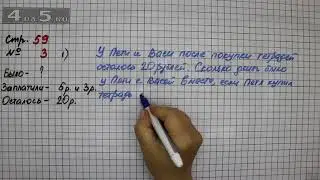 4OK5.RU
Стр. 59
№ 3 1)
Было - ?
Заплатили - 6р. и 3р.
Осталось - 20р.
У Пети и Васи после покупки тетрадей
осталось 20 рублей. Сколько денег было
у Пети с Васей вместе, если Петя купил
тетрадь